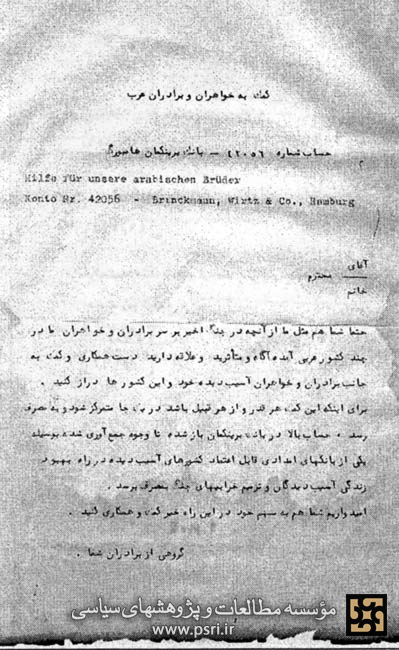 کمک به خواهران و برادران عرب
حساب شماره ۴۲۰۵۶ – بانک برینکمان هامبورگ
Hilfe für unsere arabischen Brüder
Konto Nr. 42056 - Brinckmann, Wirtz & Co., Hamburg
آقای
محترم
خانم
حتما شما هم مثل ما از آنچه در جنگ اخیر بر سر برادران و خواهران ما در
چند کشور عربی آمده آگاه و متأثرید و علاقه دارید دست همکاری و کمک به
جانب برادران و خواهران آسیب دیده خود و این کشور ها دراز کنید .
برای اینکه این کمک هر قدر و از هر قبیل باشد در یک جا متمرکز شود و به مصرف
رسد ، حساب بالا در بانک برینکمان باز شده تا وجوه جمع آوری شده بوسیله
یکی از بانکهای امدادی قابل اعتماد کشورهای آسیب دیده در راه بهبود
زندگی آسیب دیدگان و ترمیم خرابیهای جنگ بمصرف برسد .
امیدواریم شما هم به سهم خود در این راه خیر کمک و همکاری کنید .
گروهی از برادران شما .
مؤسسه مطالعات و پژوهشهای سیاسی
www.psri.ir